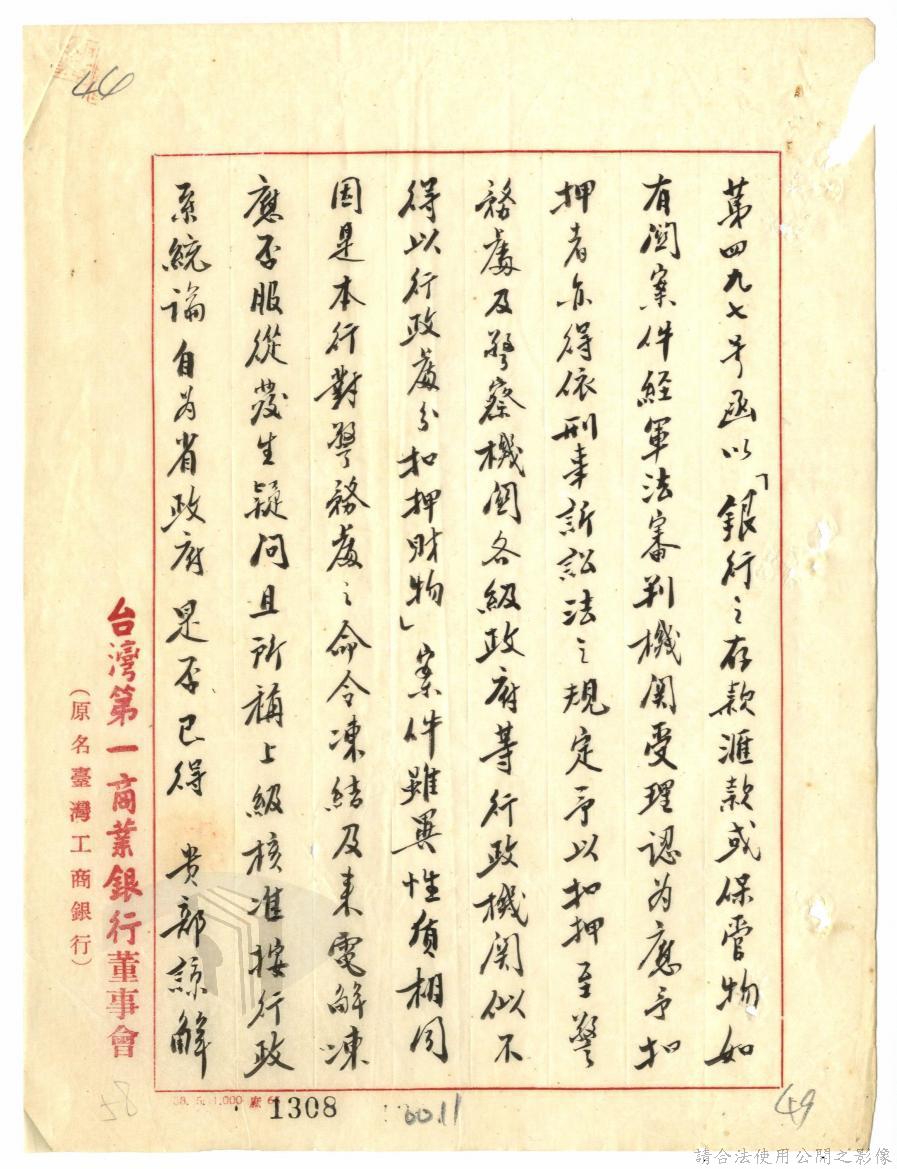 44
第四九七号函以「銀行之存款滙款或保管物如
有関案件経軍法審判機関受理認為應予扣
押者亦得依刑事訴訟法之規定予以扣押至警
務處及警察機関各級政府等行政機関似不
得以行政處分扣押財物」案件雖異性質相同
因是本行對警務處之命令凍結及来電解凍
應否服從發生疑问且所稱上級核准按行政
系統論自为省政府是否已得 貴部諒解
台灣第一商業銀行董事會
(原名臺灣工商銀行)
1308
49
請合法使用公開之影像